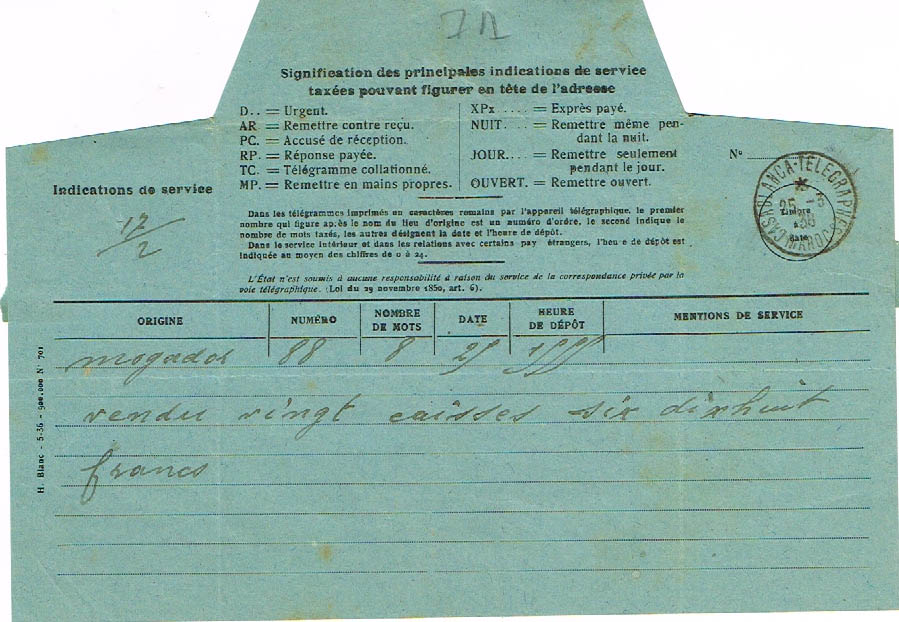 Signification des principales indications de service
taxées pouvant figurer en tête de l'adresse
D.. = Urgent.
AR. = Remettre contre reçu.
PC. = Accusé de réception.
RP. = Réponse payée.
TC. = Télégramme collationné.
MP. = Remettre en mains propres.
XPx .... = Exprès payé.
NUIT.... = Remettre même pen-
dant la nuit.
JOUR.... = Remettre seulement
pendant le jour.
OUVERT. = Remettre ouvert.
Nº
Indications de service
17/2
CASABLANCA-TELEGRAPHE
25 -3
38
MAROC
Timbre
à
date
Dans les télégrammes imprimés en caractères romains par l'appareil télégraphique, le premier
nombre qui figure après le nom du lieu d'origine est un numéro d'ordre, le second indique le
nombre de mots taxés, les autres désignent la date et l'heure de dépôt.
Dans le service intérieur et dans les relations avec certains pay étrangers, l'heu e de dépôt est
indiquée au moyen des chiffres de 0 à 24.
L'État n'est soumis à aucune responsabilité à raison du service de la correspondance privée par la
voie télégraphique. (Loi du 29 novembre 1850, art. 6).
ORIGINE NUMÉRO NOMBRE DE MOTS DATE HEURE DE DÉPÔT MENTIONS DE SERVICE
mogador 88 8 25 1555
vendu vingt caisses six dixhuit
francs
H. Blanc - 5-36 - 900.000 Nº 701